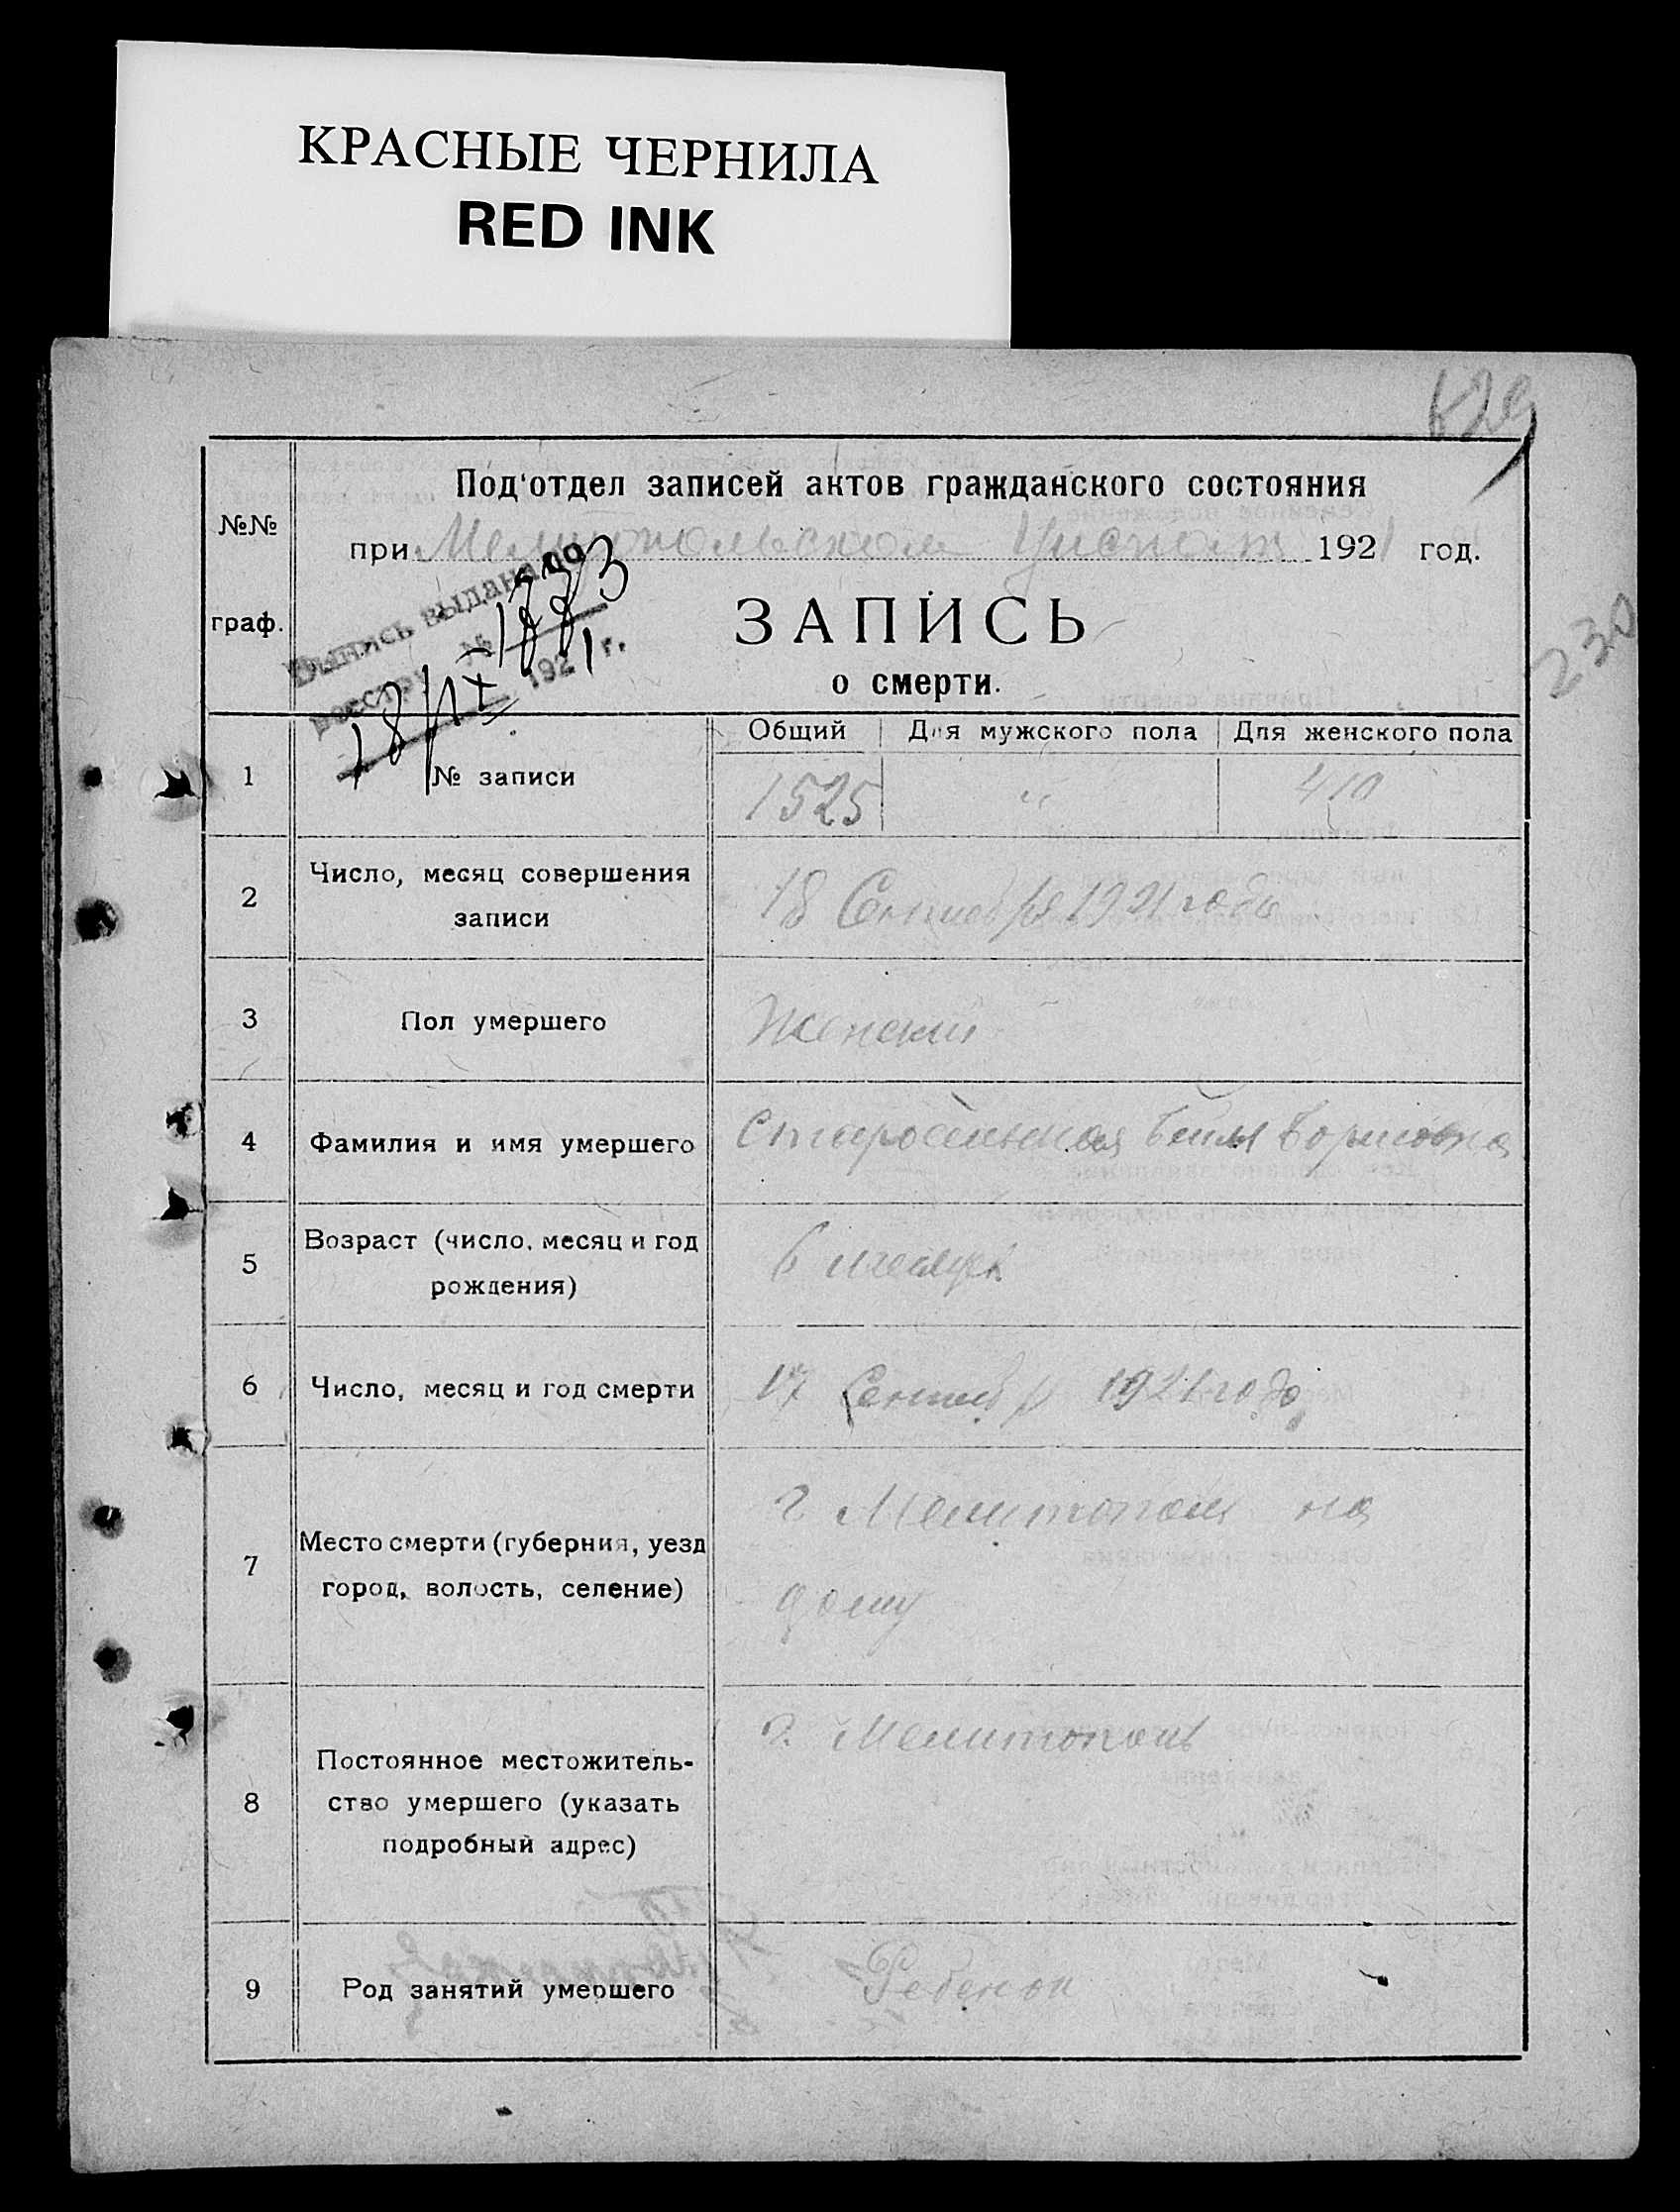 КРАСНЫЕ ЧЕРНИЛА
RED INK
629
Под'отдел записей актов гражданского состояния
№№
при Мелитопольском 1921 год.
Выпись выдана по
реестру № 1883
18/IX 1921 г.
граф.
ЗАПИСЬ
о смерти.
230
Общий Для мужского пола Для женского пола
1 № записи 1525 " 410
2 Число, месяц совершения
записи
18 Сентября 1921 года
3 Пол умершего Женский
4 Фамилия и имя умершего Бейля Борисовна
5 Возраст (число, месяц и год
рождения)
6 месяцев
6 Число, месяц и год смерти 17 Сентябр 1921 года
7 Место смерти (губерния, уезд
город, волость, селение)
г Мелитополь на
дому
8 Постоянное местожитель-
ство умершего (указать
подробный адрес)
г. Мелитополь
9 Род занятий умершего Ребенок